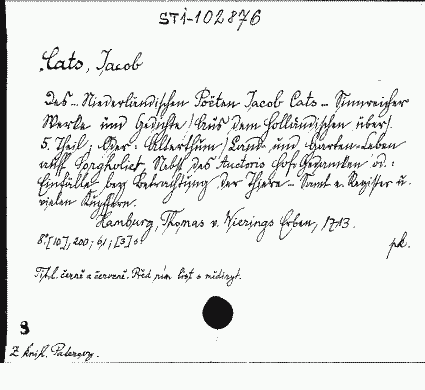 STI-102876
Cats, Jacob
Des... Niederländischen Poëten Jacob Cats... Sinnreicher
Werke und Gedichte / Aus dem Holländischen übers/.
5. Theil; Oder: Alterthum / Land- und Garten-Leben
Nebst des Auctoris Hof-Gedancken od.:
Einfälle bey Betrachtung der Thiere... Samt e. Register u.
vielen Kupffern.
Hamburg, Thomas v. Wierings Erben, 1713.
8°, [10], 200; 61; [3] s
pk.
Tit.l. černě a červeně. Před ním list s mědiryt.
8
Z knih. Palezovy.